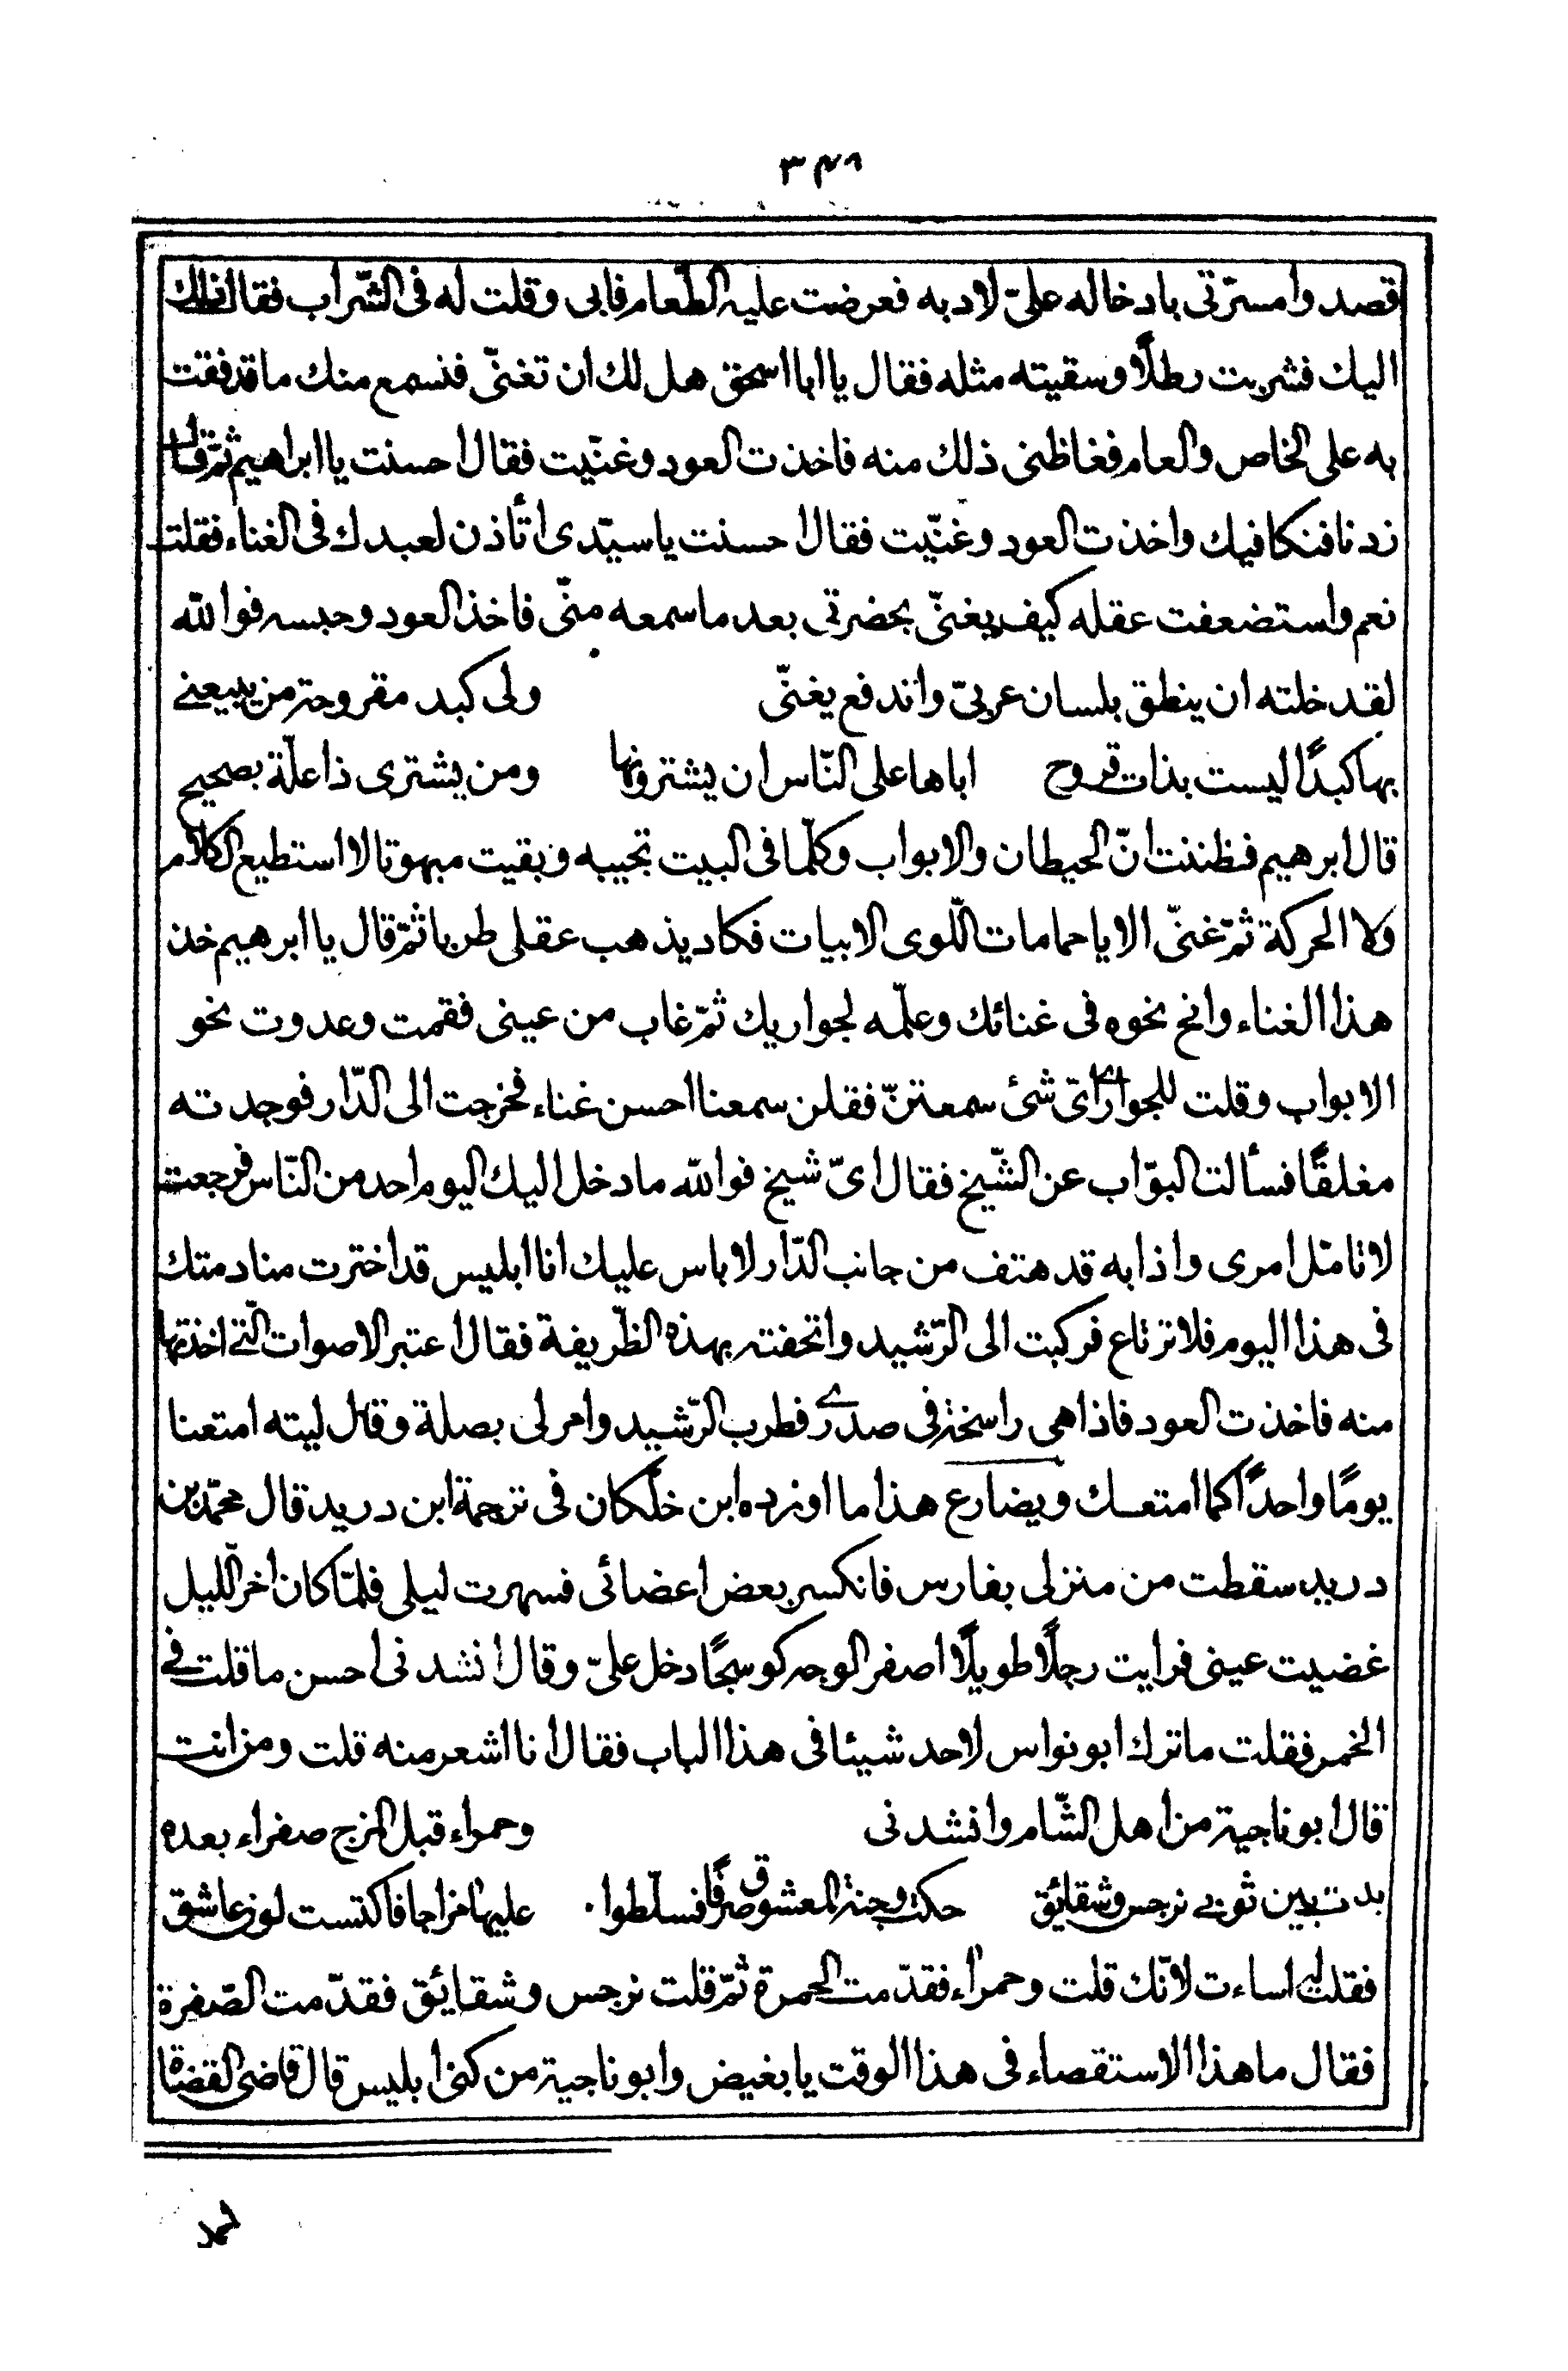 ٣٤٩
قصد وامسرّتى بادخاله علىّ لادبه فعرضت عليه الطّعام فابى وقلت له فى الشّراب فقال ذلك
اليك فشربت رطلًا وسقيته مثله فقال يا ابا اسحق هل لك ان تغنّى فنسمع منك ما قد فقت
به على الخاص والعام فغاظنى ذلك منه فاخذت العود وغنّيت فقال احسنت يا ابراهيم ثمّ قال
زدنا فنكافيك واخذت العود وغنّيت فقال احسنت يا سيّدى اتأذن لعبدك فى الغناء فقلت
نعم واستضعفت عقله كيف يغنّى بحضرتى بعد ما سمعه منّى فاخذ العود وحبسه فوالله
لقد خلته ان ينطق بلسان عربىّ واندفع يغنّى ولى كبد مقروحة من يبيعنے
بها كبدًا ليست بذات قروح اباها على النّاس ان يشترونها ومن يشترى ذا علّة بصحيح
قال ابرهيم فظننت انّ الحيطان والابواب وكلّما فى البيت تجيبه وبقيت مبهوتا لا استطيع الكلام
ولا الحركة ثمّ غنّى الا يا حمامات اللّوى الابيات فكاد يذهب عقلى طربا ثمّ قال يا ابرهيم خذ
هذا الغناء وانح نحوه فى غنائك وعلّمه لجواريك ثمّ غاب من عينى فقمت وعدوت نحو
الابواب وقلت للجوارى اىّ شئ سمعتنّ فقلن سمعنا احسن غناء فخرجت الى الدّار فوجدته
مغلقًا فسألت البوّاب عن الشّيخ فقال اىّ شيخ فوالله ما دخل اليك اليوم احد من النّاس فرجعت
لاتامّل امرى واذا به قد هتف من جانب الدّار لا باس عليك انا ابليس قد اخترت منادمتك
فى هذا اليوم فلا ترتاع فركبت الى الرّشيد واتحفته بهذه الظّريفة فقال اعتبر الاصوات الّتے اخذتها
منه فاخذت العود فاذا هى راسخة فى صدرے فطرب الرّشيد وامر لى بصلة وقال ليته امتعنا
يومًا واحدًا كما امتعك ويضارع هذا ما اورده ابن خلّكان فى ترجمة ابن دريد قال محمّد بن
دريد سقطت من منزلى بفارس فانكسر بعض اعضائى فسهرت ليلى فلمّا كان اخر اللّيل
غضيت عينى فرايت رجلًا طويلًا اصفر الوجه كوسجًا دخل علىّ وقال انشدنى احسن ما قلت فے
الخمر فقلت ما ترك ابو نواس لاحد شيئا فى هذا الباب فقال انا اشعر منه قلت ومن انت
قال ابو ناجية من اهل الشّام وانشدنى وحمراء قبل المزج صفراء بعده
بدت بين ثوبے نرجس وشقائق حكت وجنة المعشوق صرفًا فسلّطوا عليها مزاجا فاكتست لون عاشق
فقلت له اساءت لانّك قلت وحمراء فقدّمت الحمرة ثمّ قلت نرجس وشقايق فقدّمت الصّفرة
فقال ما هذا الاستقصاء فى هذا الوقت يا بغيض وابو ناجية من كنى ابليس قال قاضى القضاة